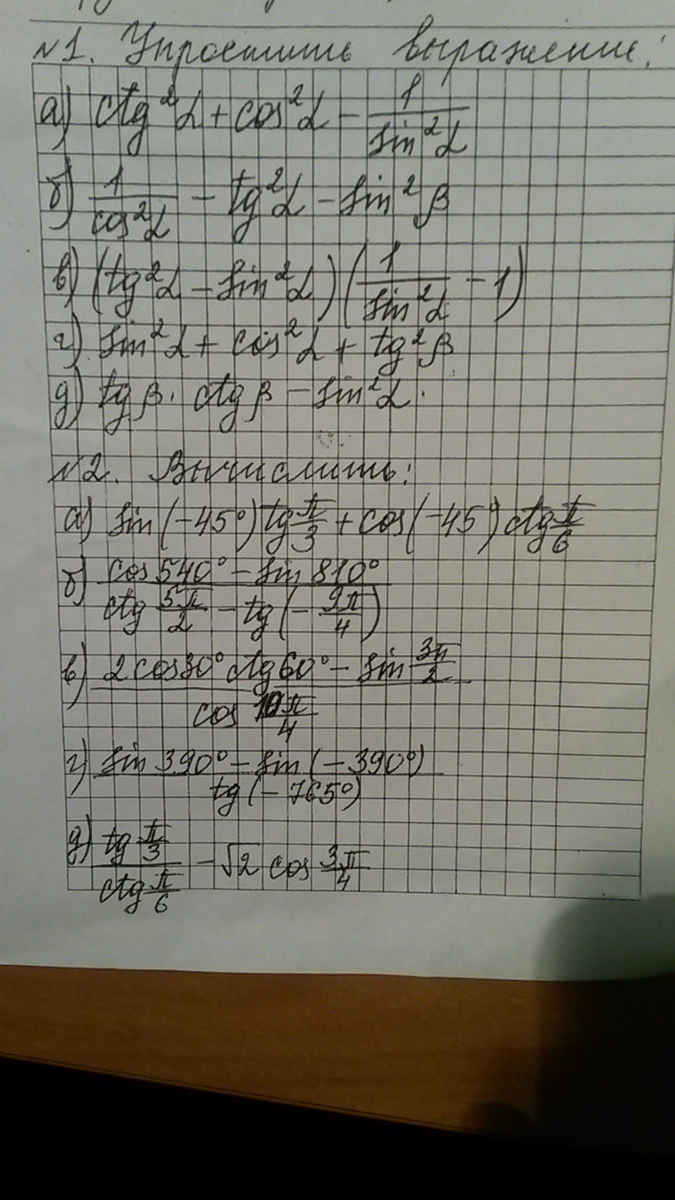 №1. Упростить выражение:
а) ctg²α + cos²α - 1/sin²α
б) 1/cos²α - tg²α - sin²β
в) (tg²α - sin²α)(1/sin²α - 1)
г) sin²α + cos²α + tg²β
д) tgβ · ctgβ - sin²α.
№2. Вычислить:
а) sin(-45°)tg π/3 + cos(-45°)ctg π/6
б) (cos 540° - sin 810°)/(ctg 5π/2 - tg(-9π/4))
в) (2cos30° ctg60° - sin 3π/2)/(cos π/4)
г) (sin 390° - sin(-390°))/(tg(-765°))
д) (tg π/3)/(ctg π/6) - √2 cos 3π/4